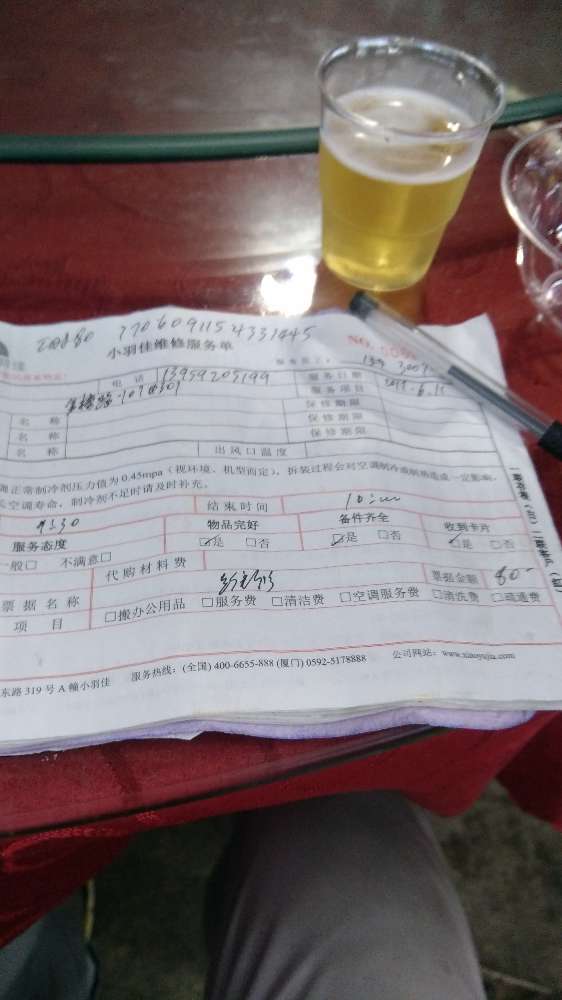 7706091154331445
小羽佳维修服务单 NO.
电话 13959205199 服务日期
服务项目
名称 保修期限
名称 保修期限
名称 出风口温度 保修期限
调正常制冷剂压力值为0.45mpa（视环境、机型而定），拆装过程会对空调制冷或制热造成一定影响，
空调寿命，制冷剂不足时请及时补充。
9:30 结束时间 10:
服务态度 物品完好 备件齐全 收到卡片
一般□ 不满意□ □是 □否 □是 □否 □是 □否
代购材料费
票据名称 票据金额 80-
项目 □搬办公用品 □服务费 □清洁费 □空调服务费 □清洗费 □疏通费
东路319号A幢小羽佳 服务热线：(全国) 400-6655-888 (厦门) 0592-5178888 公司网站：www.xiaoyujia.com